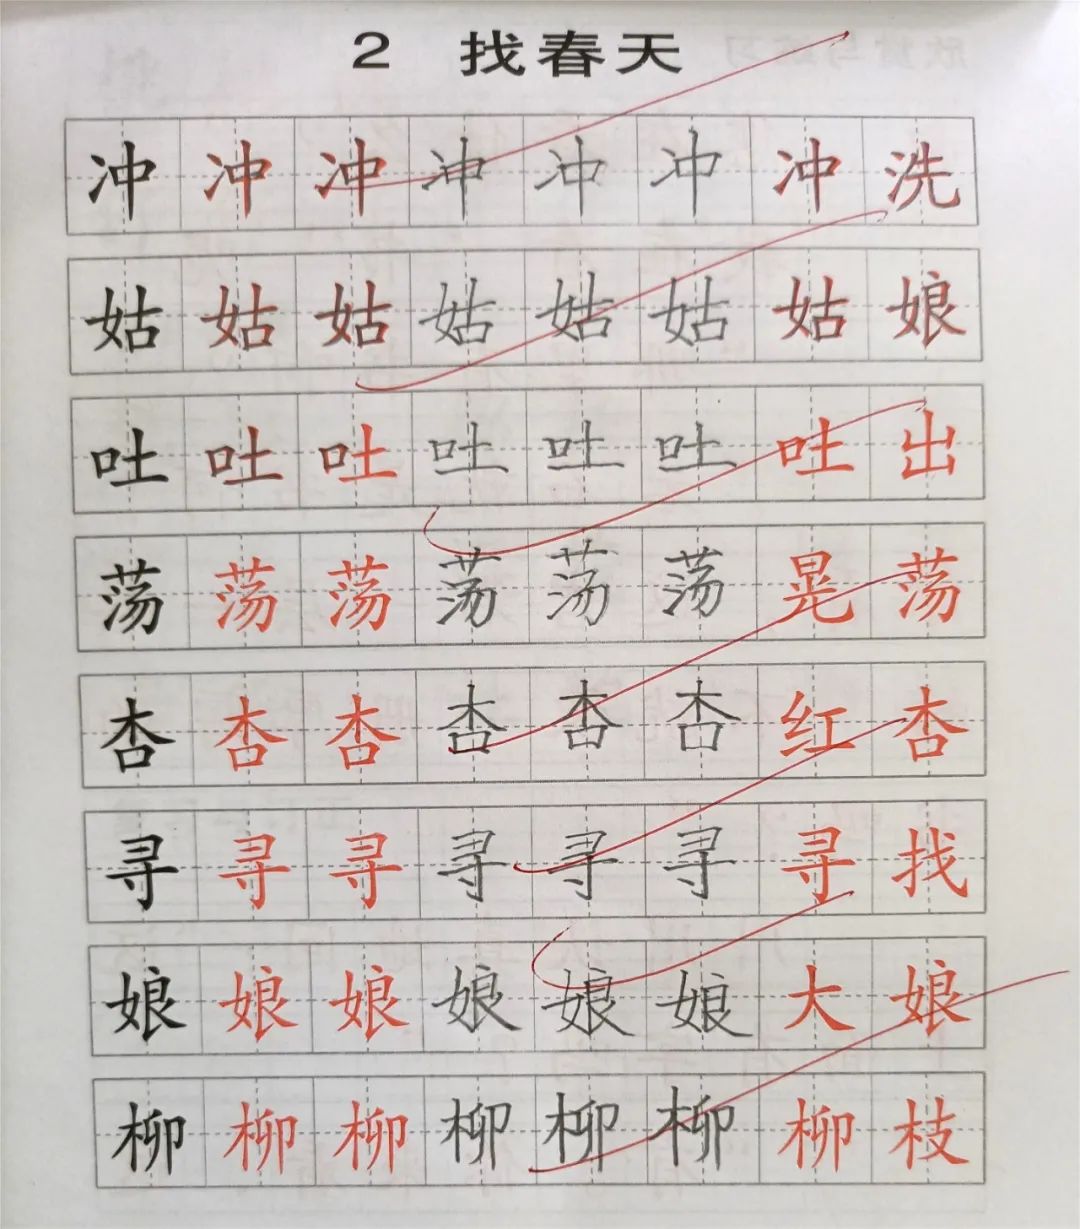 2 找春天
冲冲冲冲冲冲冲洗
姑姑姑姑姑姑姑娘
吐吐吐吐吐吐吐出
荡荡荡荡荡荡晃荡
杏杏杏杏杏杏红杏
寻寻寻寻寻寻寻找
娘娘娘娘娘娘大娘
柳柳柳柳柳柳柳枝